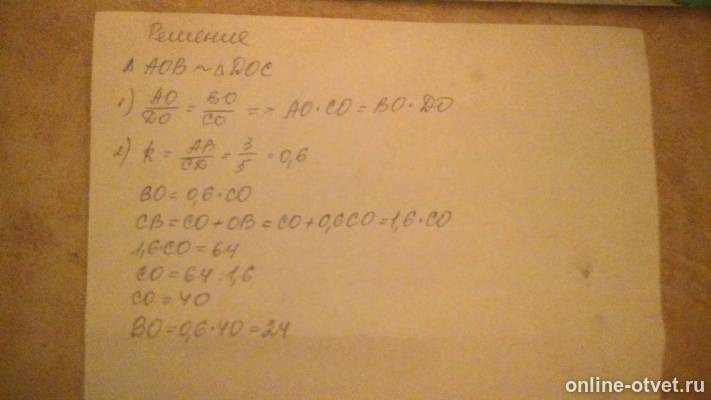 Решение
Δ AOB ~ Δ DOC
1) AO/DO = BO/CO => AO·CO = BO·DO
2) k = AB/CD = 3/5 = 0,6
BO = 0,6·CO
CB = CO + OB = CO + 0,6CO = 1,6·CO
1,6·CO = 64
CO = 64:1,6
CO = 40
BO = 0,6·40 = 24
online-otvet.ru